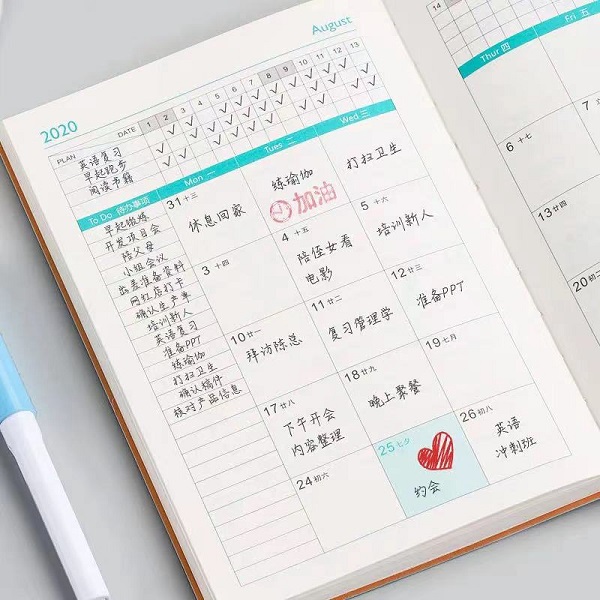 2020
August
DATE 1 2 3 4 5 6 7 8 9 10 11 12 13
PLAN
英语复习
早起跑步
阅读书籍
To Do 待办事项
Mon 一
Tues 二
Wed 三
早起锻炼
开发项目会
陪父母
小组会议
出差准备资料
网红店打卡
确认生产单
培训新人
英语复习
准备PPT
练瑜伽
打扫卫生
确认稿件
核对产品信息
31 十三
休息回家
练瑜伽
加油
打扫卫生
3 十四
4 十五
陪侄女看
电影
5 十六
培训新人
10 廿一
拜访陈总
11 廿二
复习管理学
12 廿三
准备PPT
17 廿八
下午开会
内容整理
18 廿九
晚上聚餐
19 七月
24 初六
25 七夕
约会
26 初八
英语
冲刺班
14
Thur 四
Fri 五
6 十七
7
13 廿四
20 初二